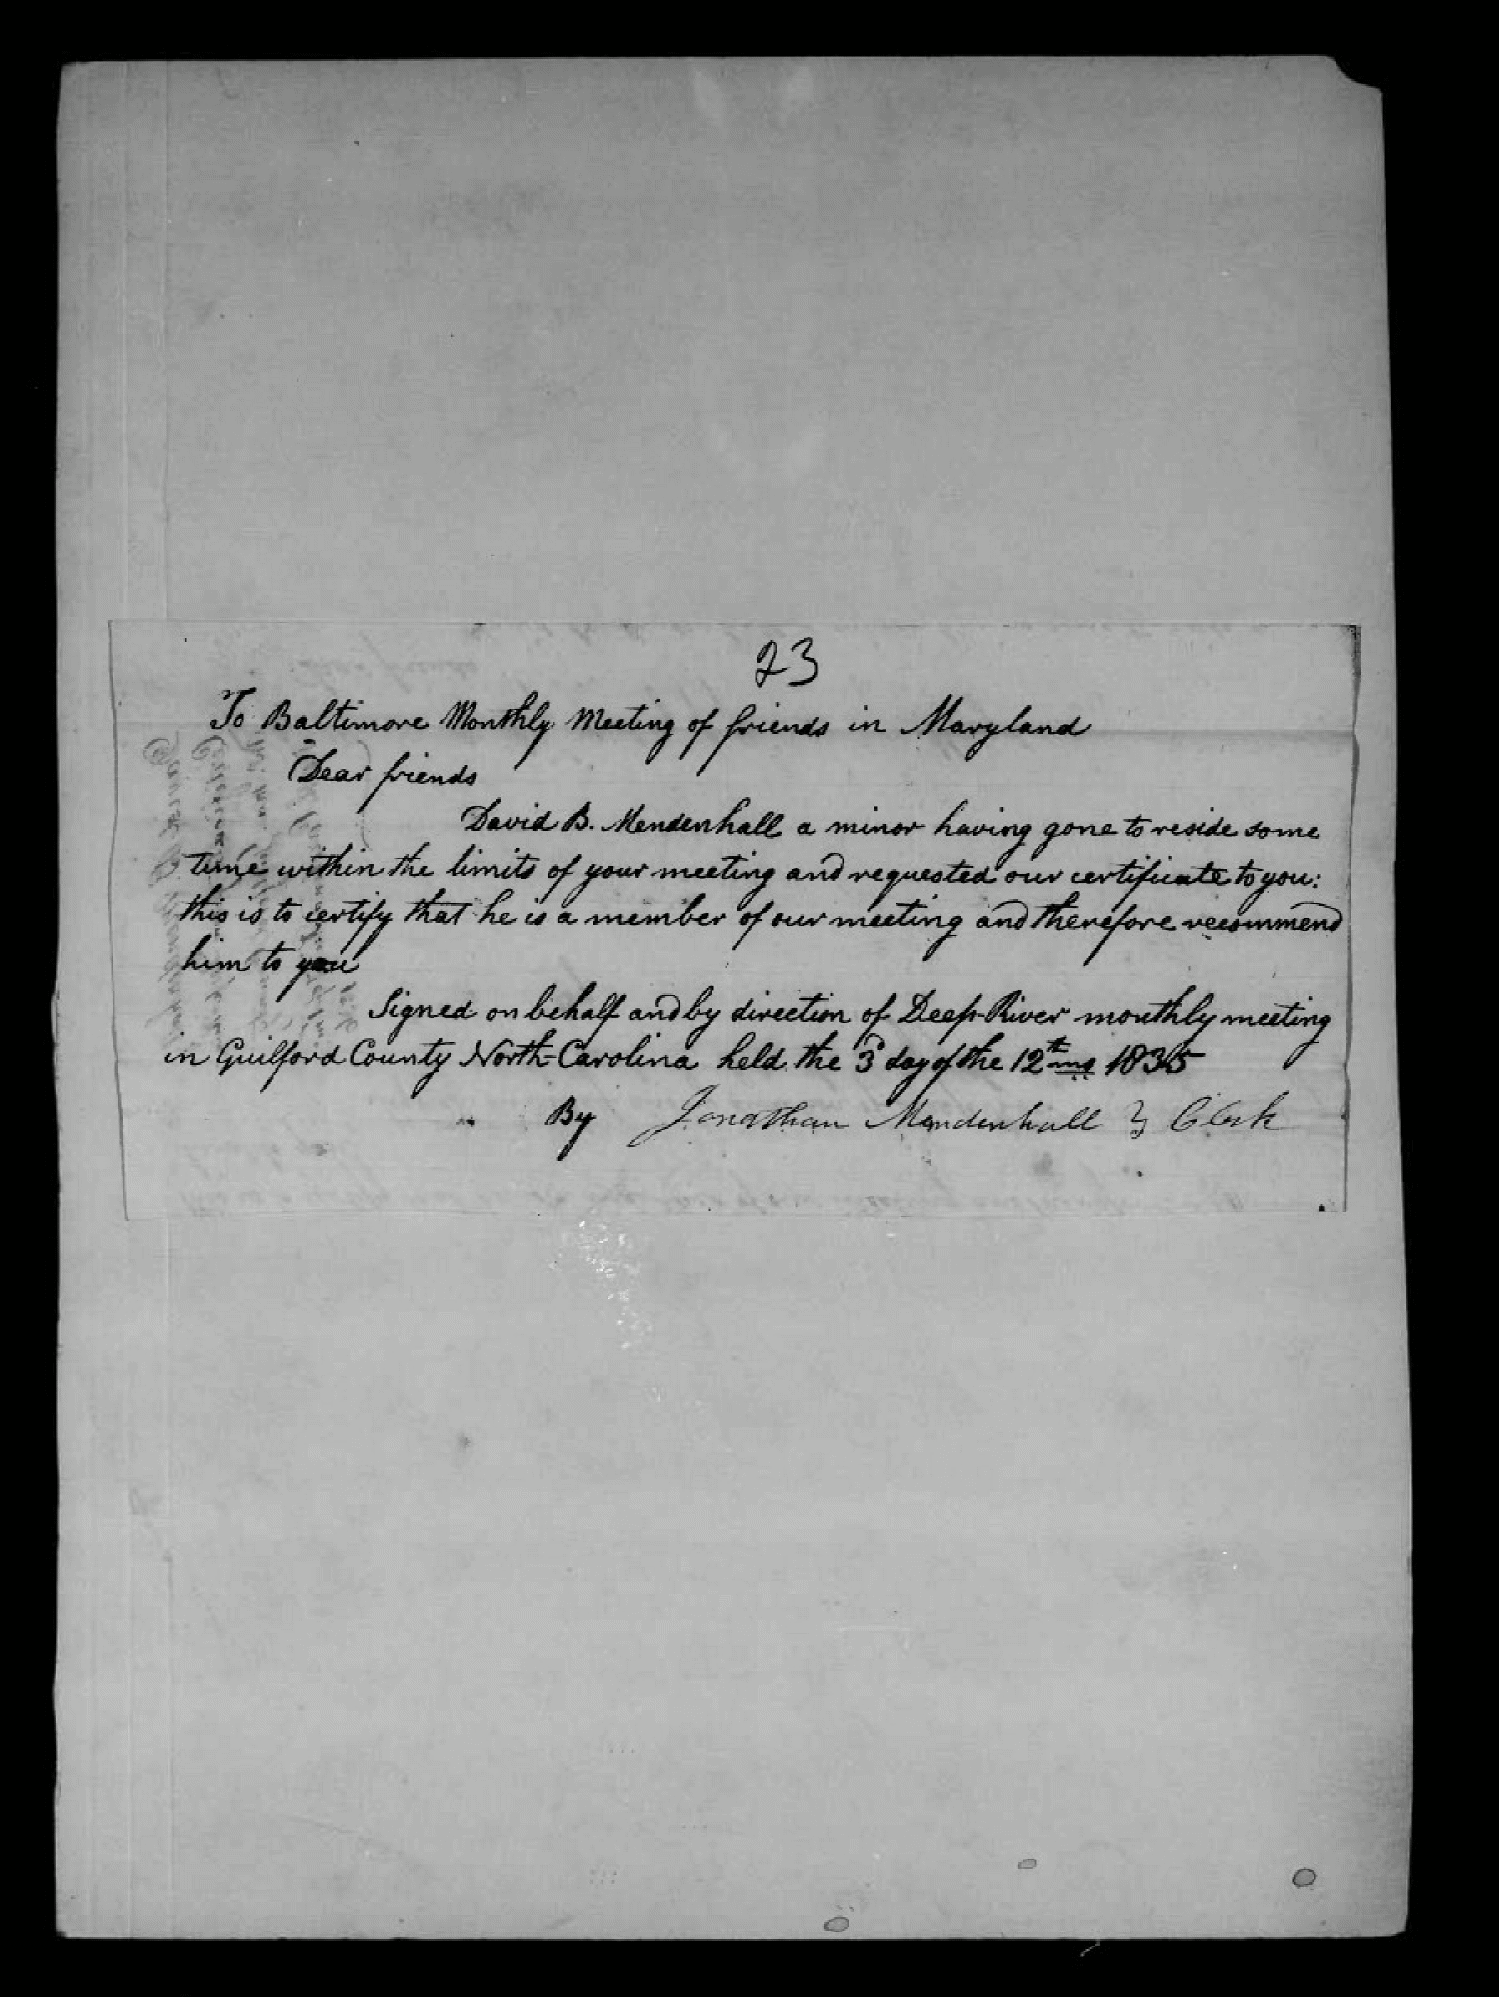 23
To Baltimore Monthly Meeting of friends in Maryland
Dear friends
David B. Mendenhall a minor having gone to reside some
time within the limits of your meeting and requested our certificate to you:
this is to certify that he is a member of our meeting and therefore recommend
him to you
Signed on behalf and by direction of Deep-River monthly meeting
in Guilford County North-Carolina held the 3d day of the 12th mo 1835
By Jonathan Mendenhall } Clerk